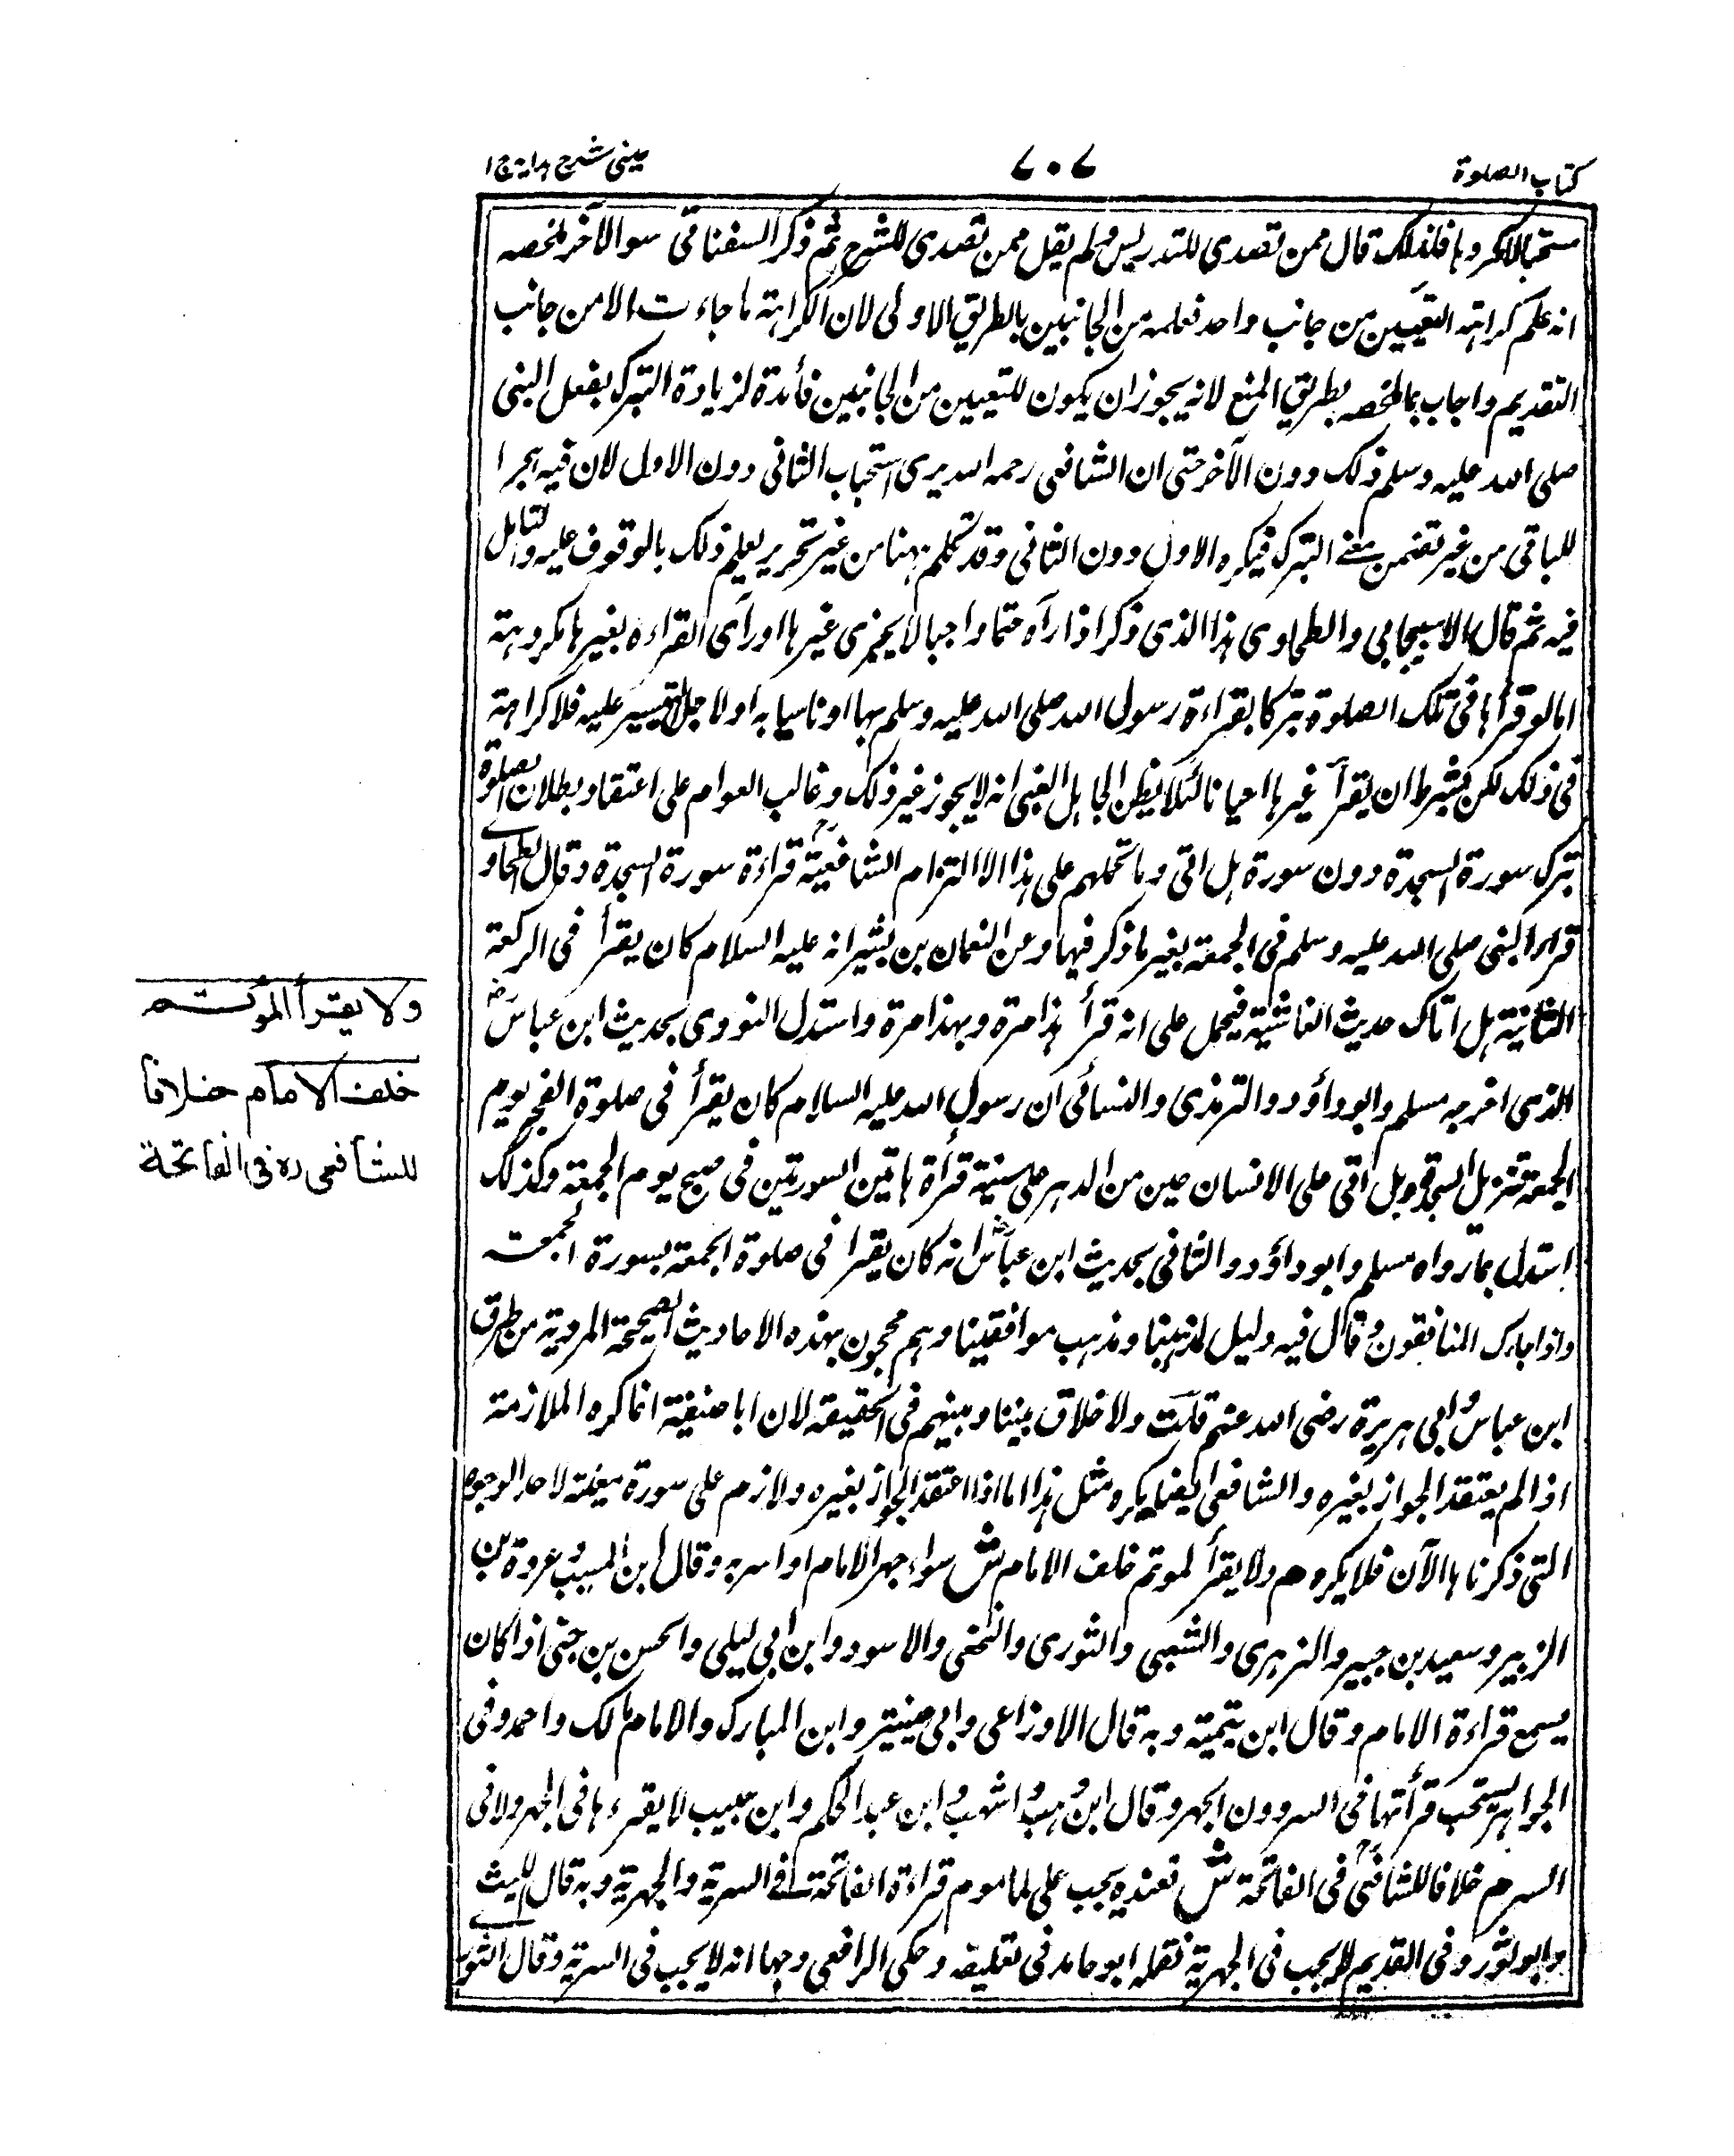 كتاب الصلوة
٧٠٧
عينى شرح هداية ج ١
مستحبا لا مكروها فلذلك قال ممن تصدى للتدريس ولم يقل ممن تصدى للشرح ثم ذكر السغناقى سوالا آخر ملخصه
انه علم كراهته التعيين من جانب واحد فعلمه من الجانبين بالطريق الاولى لان الكراهة ما جاءت الا من جانب
التقديم واجاب بما ملخصه بطريق المنع لانه يجوز ان يكون للتعيين من الجانبين فائدة لزيادة التبرك بفعل النبى
صلى الله عليه وسلم ذلك دون الآخر حتى ان الشافعى رحمه الله يرى استحباب الثانى دون الاول لان فيه هجرا
للباقى من غير تضمن معنے التبرك فيكره الاول دون الثانى وقد تكلم ههنا من غير تحرير يعلم ذلك بالوقوف عليه والتامل
فيه ثم قال الاسبيجابى والطحاوى هذا الذى ذكر اذا رآه حتما واجبا لا يجزى غيرها او رأى القراءه بغيرها مكروهة
اما لو قرأها فى تلك الصلوة تبركا بقراءة رسول الله صلى الله عليه وسلم بها او تاسيا به او لاجل التيسير عليه فلا كراهة
فى ذلك لكن بشرط ان يقرأ غيرها احيانا لئلا يظن الجاهل الغبى انه لا يجوز غير ذلك وغالب العوام على اعتقاد بطلان الصلوة
بترك سورة السجدة دون سورة هل اتى وما تحملهم على هذا الا التزام الشافعية قراءة سورة السجدة وقال الطحاوے
قراء النبى صلى الله عليه وسلم فى الجمعة بغير ما ذكر فيها وعن النعمان بن بشير انه عليه السلام كان يقرأ فى الركعة
الثانية هل اتاك حديث الغاشية فيحمل على انه قرأ بهذا مرة وبهذا مرة واستدل النووى بحديث ابن عباس
الذى اخرجه مسلم وابو داؤد والترمذى والنسائى ان رسول الله عليه السلام كان يقرأ فى صلوة الفجر يوم
الجمعة تنزيل السجدة وهل اتى على الانسان حين من الدهر على سنية قرأة هاتين السورتين فى صبح يوم الجمعة وكذلك
استدل بما رواه مسلم وابو داؤد والشافى بحديث ابن عباس انه كان يقرا فى صلوة الجمعة بسورة الجمعة
واذا جاءك المنافقون وقال فيه دليل لمذهبنا ومذهب موافقينا وهم محجون بهذه الاحاديث الصحيحة المروية من طرق
ابن عباس وابى هريرة رضى الله عنهم قلت ولا خلاف بيننا وبينهم فى الحقيقة لان ابا حنيفة انما كره الملازمة
اذا لم يعتقد الجواز بغيره والشافعى ايضا يكره مثل هذا اما اذا اعتقد الجواز بغيره ولازم على سورة معينة لاحد الوجوه
التى ذكرناها الآن فلا يكره م ولا يقرأ لموتم خلف الامام ش سواء جهر الامام او اسر به وقال ابن المسيب وعروة بن
الزبير وسعيد بن جبير والزهرى والشعبى والثورى والنخعى والاسود وابن ابى ليلى والحسن بن حيى اذا كان
يسمع قراءة الامام وقال ابن تيمية وبه قال الاوزاعى وابن المبارك والامام مالك واحمد وفى
الجواهر يستحب قرأتها فى السر دون الجهر وقال ابن وهب واشهب وابن عبد الحكم وابن حبيب لا يقرءها فى الجهر ولا فى
السر م خلافا للشافعى فى الفاتحة ش فعنده يجب على الماموم قراءة الفاتحة فے السرية والجهرية وبه قال الليث
وابو ثور وفى القديم لا يجب فى الجهرية نقله ابو حامد فى تعليقه وحكى الرافعى وجها انه لا يجب فى السرية وقال الثورے
ولا يقرأ المؤتم
خلف الامام خلافا
للشافعى ره فى الفاتحة